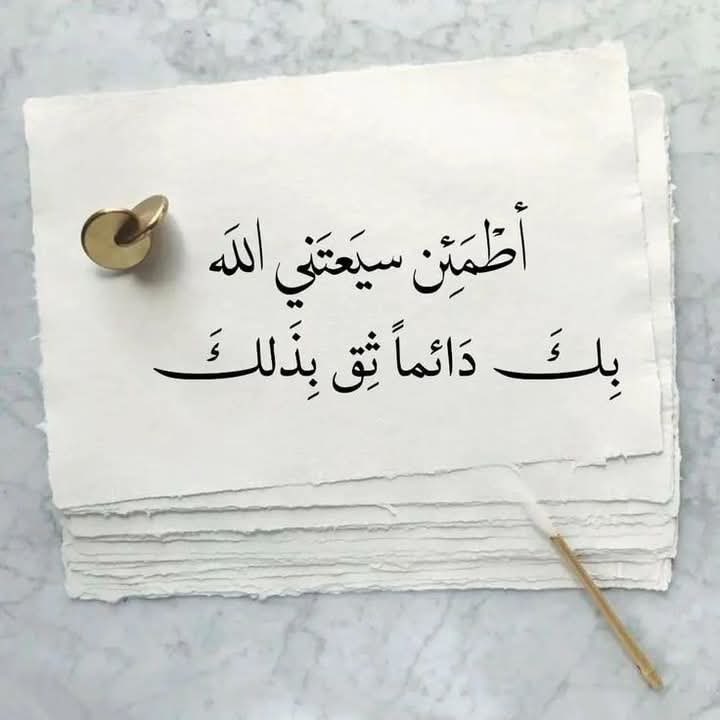 أطْمَئِن سيَعتَني اللَه
بِكَ دَائماً ثِق بِذَلكَ